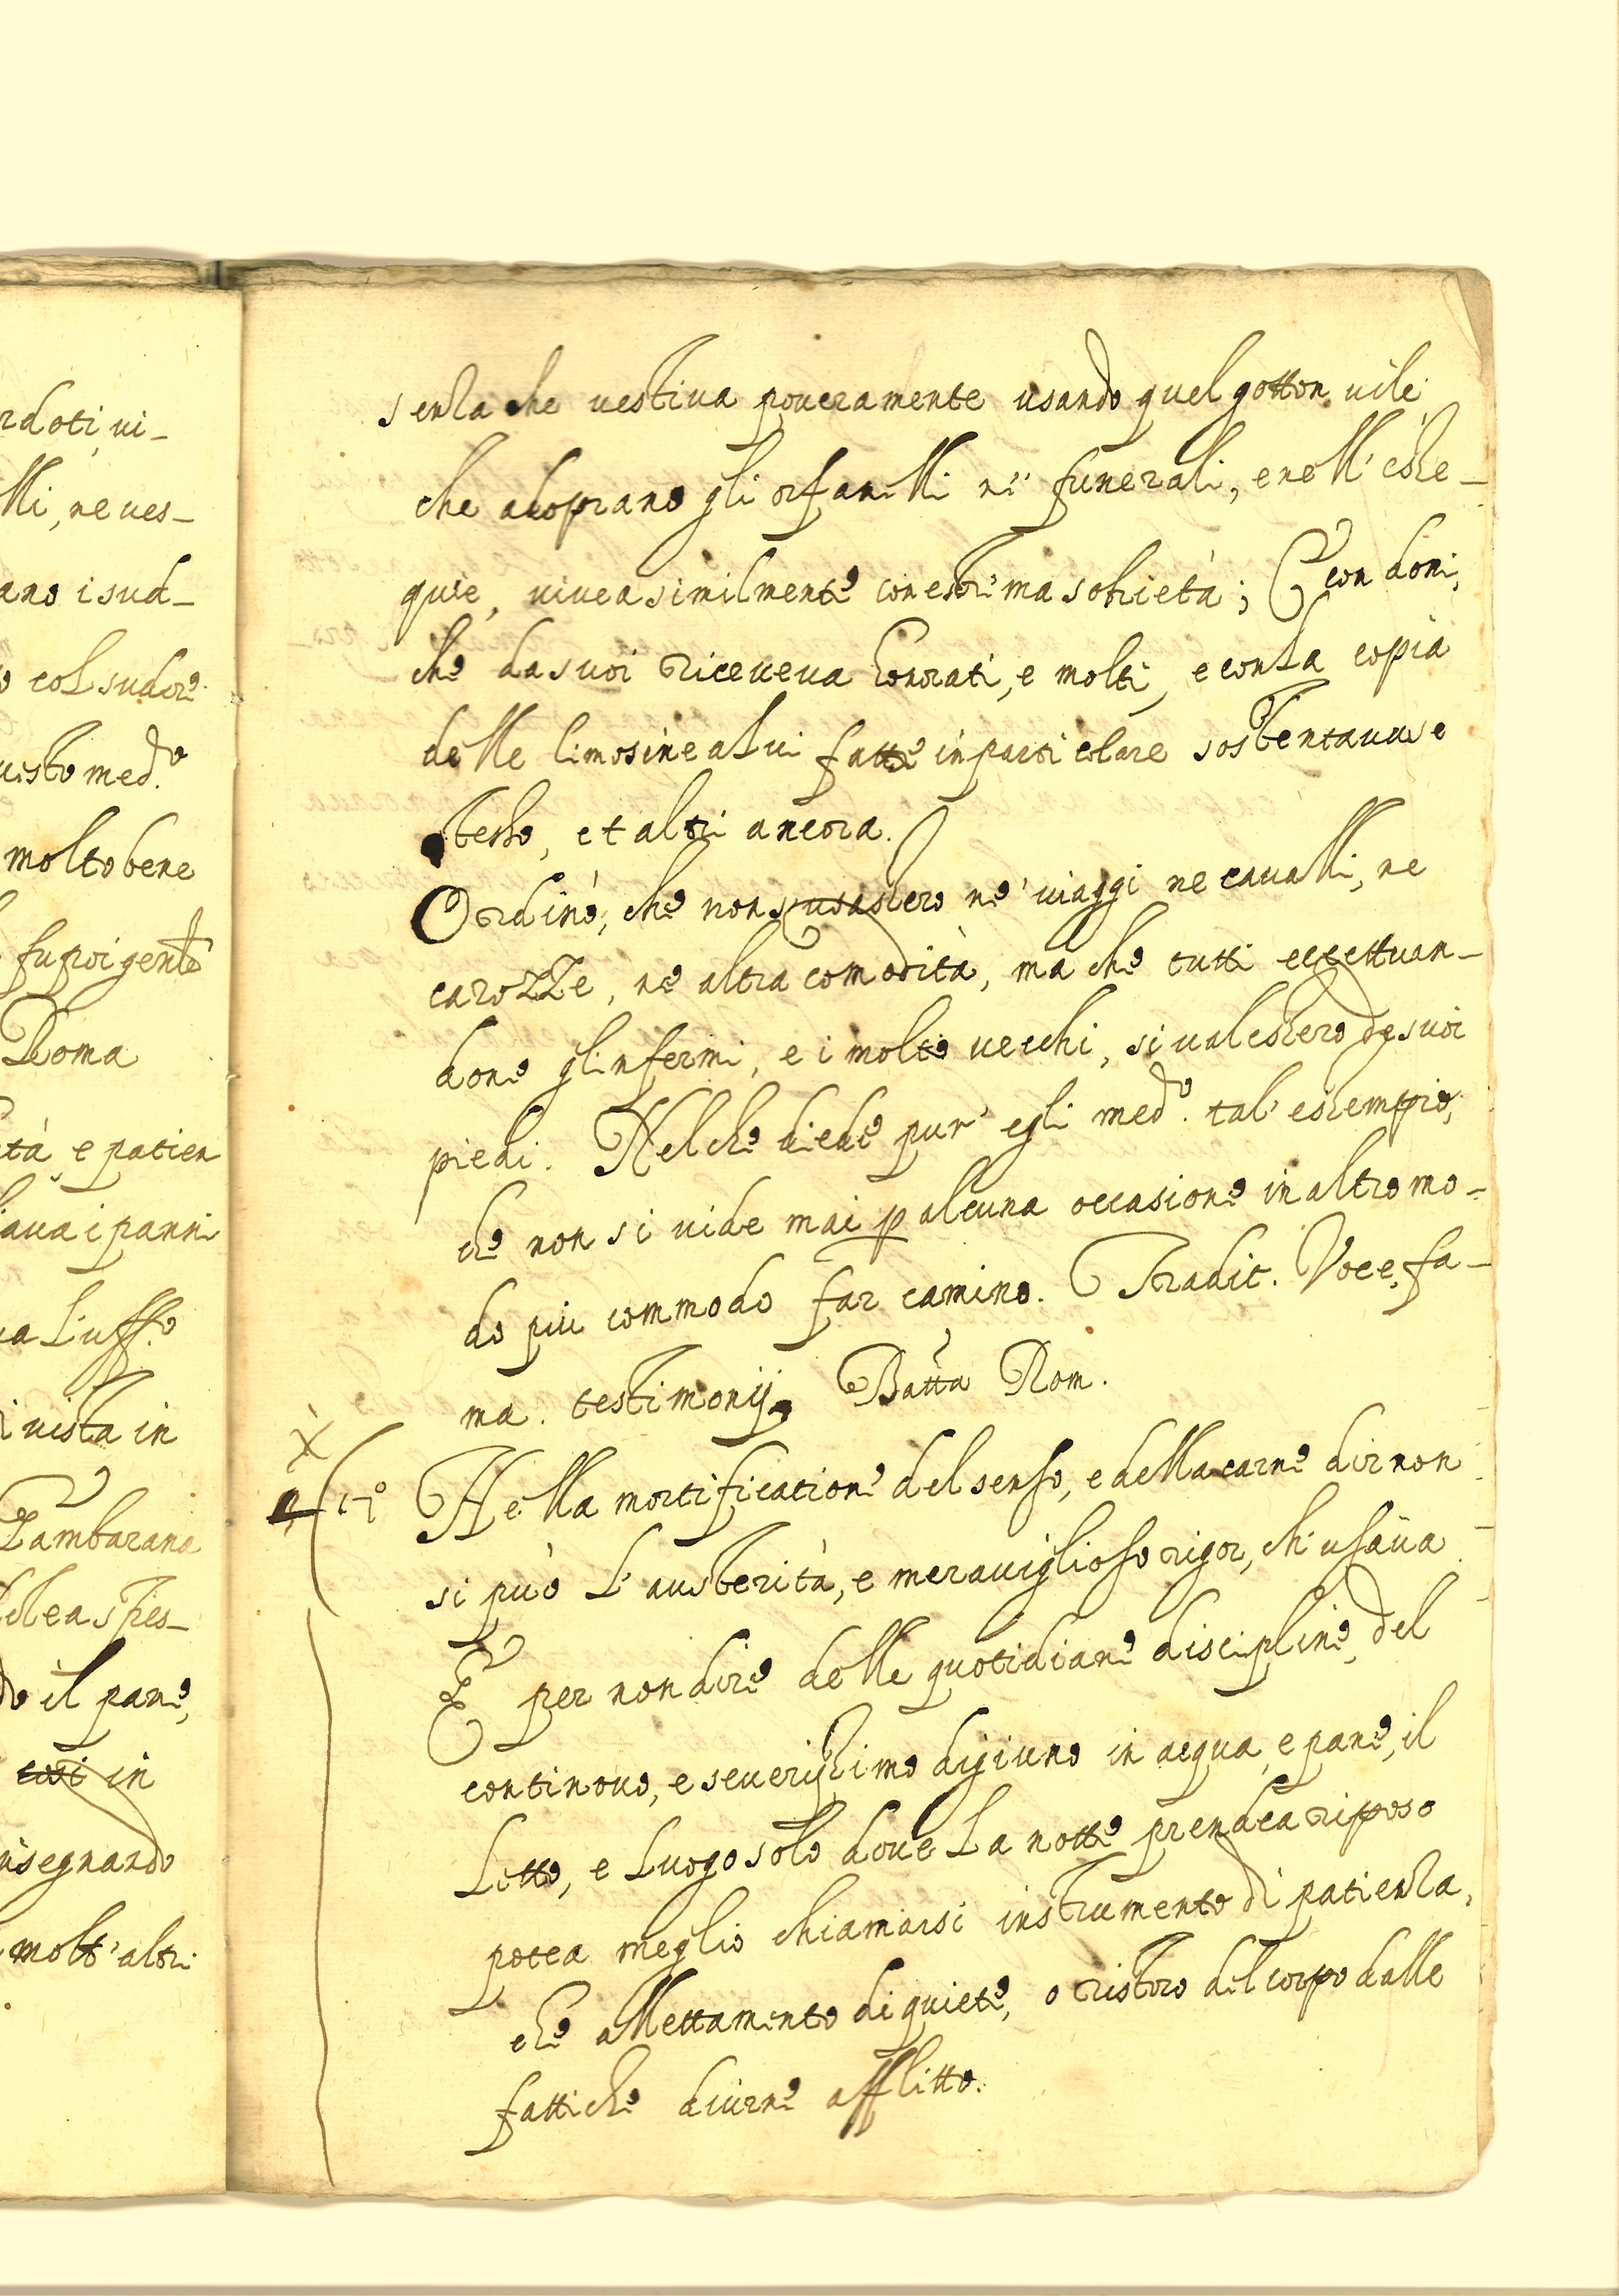 rdoti, vi-
lli, ne ves-
ano i sud-
o col sudore
uisto med.o
molto bene
fu poi gente
Roma
tà, e patien
laua i panni
ua l'uff.o
i uista in
Zambarana
do il pane,
così in
insegnando
molt'altri
senza che uestiua poueramente usando quel gotton uile,
che adoprano gli orfanelli ne' funerali, e nell'esse-
quie, uiuea similmente con estrema sobrietà; E con doni,
che da suoi riceueua honorati, e molti, e con la copia
delle limosine a lui fatte in particolare sostentaua se
stesso, et altri ancora.
Ordinò, che non s'usassero ne' uiaggi ne caualli, ne
carozze, ne altra comodità, ma che tutti eccettuan-
done gl'infermi, e i molto uecchi, si ualessero de suoi
piedi. Nel che diede pur' egli med.o tal' essempio,
che non si uide mai p alcuna occasione in altro mo-
do più commodo far camino. Tradit. Voce, fa-
ma. testimonij Batta Rom.
X
17o Nella mortificatione del senso, e della carne dir non
si può l'austerità, e merauiglioso rigor, ch'usaua
E per non dire delle quotidiane discipline, del
continouo, e seuerissimo digiuno in acqua, e pane, il
letto, e luogo solo doue la notte prendea riposo
potea meglio chiamarsi instrumento di patienza,
che allettamento di quiete, o ristoro del corpo dalle
fattiche diurne afflitto.